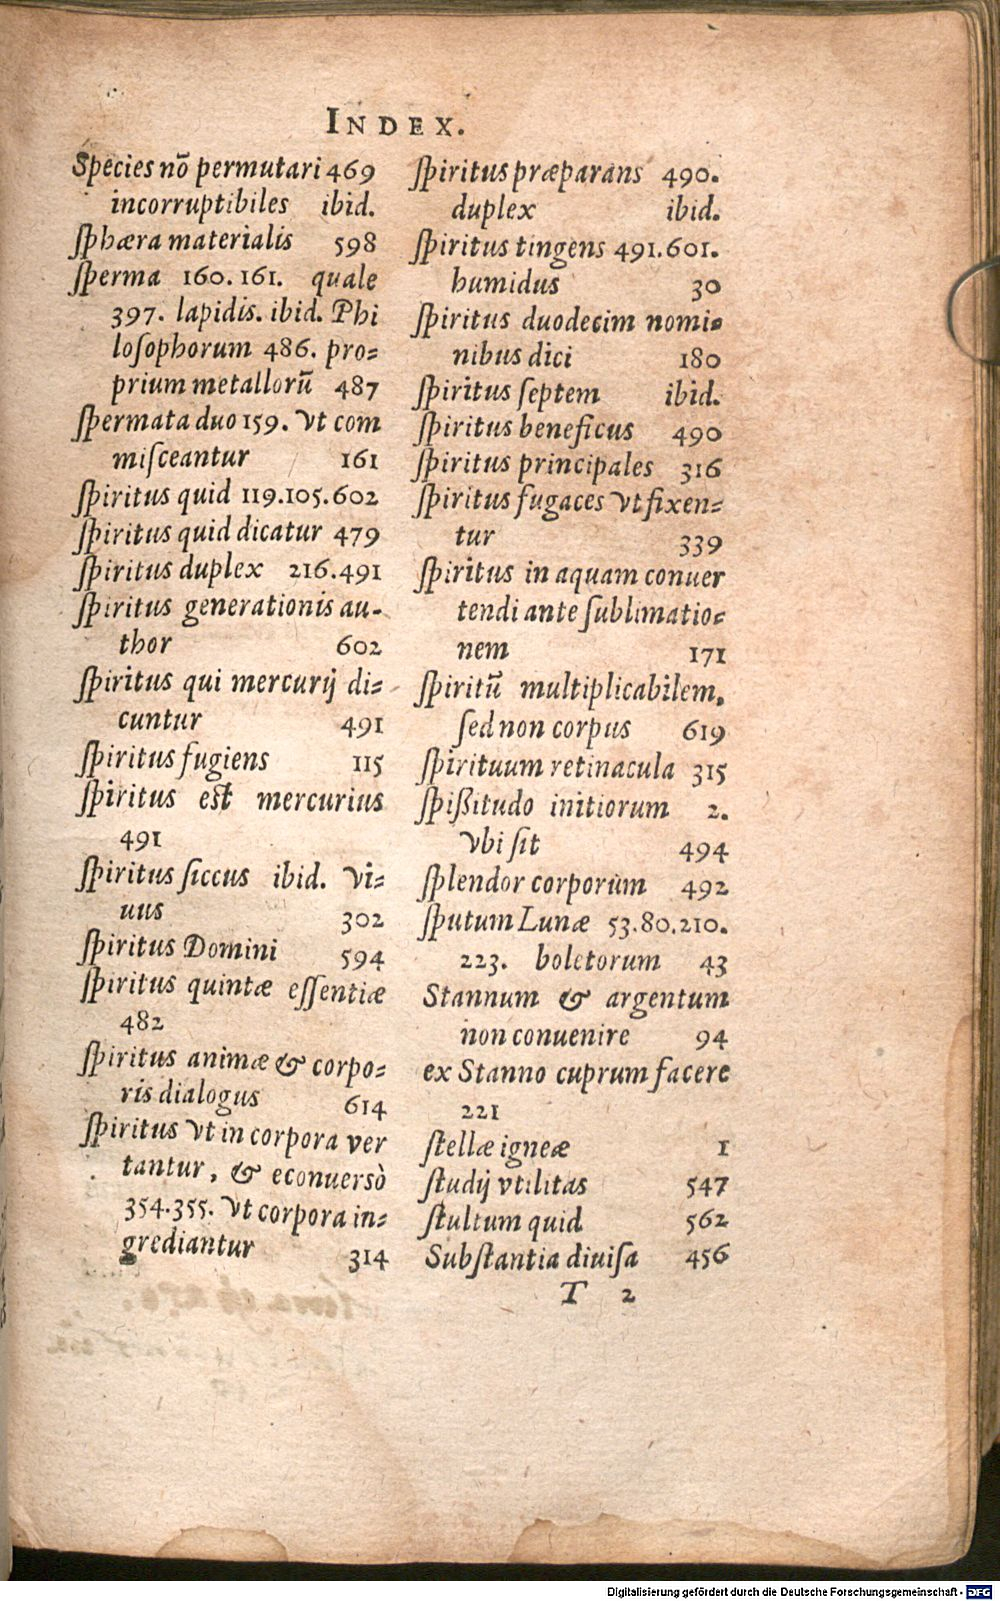 INDEX.
Species nō permutari 469
incorruptibiles ibid.
sphæra materialis 598
sperma 160. 161. quale
397. lapidis. ibid. Phi
losophorum 486. pro=
prium metallorū 487
spermata duo 159. vt com
misceantur 161
spiritus quid 119.105.602
spiritus quid dicatur 479
spiritus duplex 216.491
spiritus generationis au-
thor 602
spiritus qui mercurij di=
cuntur 491
spiritus fugiens 115
spiritus est mercurius
491
spiritus siccus ibid. vi=
uus 302
spiritus Domini 594
spiritus quintæ essentiæ
482
spiritus animæ & corpo=
ris dialogus 614
spiritus vt in corpora ver
tantur, & econuersò
354.355. vt corpora in=
grediantur 314
spiritus præparans 490.
duplex ibid.
spiritus tingens 491.601.
humidus 30
spiritus duodecim nomi=
nibus dici 180
spiritus septem ibid.
spiritus beneficus 490
spiritus principales 316
spiritus fugaces vt fixen=
tur 339
spiritus in aquam conuer
tendi ante sublimatio=
nem 171
spiritū multiplicabilem,
sed non corpus 619
spirituum retinacula 315
spißitudo initiorum 2.
vbi sit 494
splendor corporum 492
sputum Lunæ 53.80.210.
223. boletorum 43
Stannum & argentum
non conuenire 94
ex Stanno cuprum facere
221
stellæ igneæ 1
studij vtilitas 547
stultum quid 562
Substantia diuisa 456
T 2
Digitalisierung gefördert durch die Deutsche Forschungsgemeinschaft - DFG